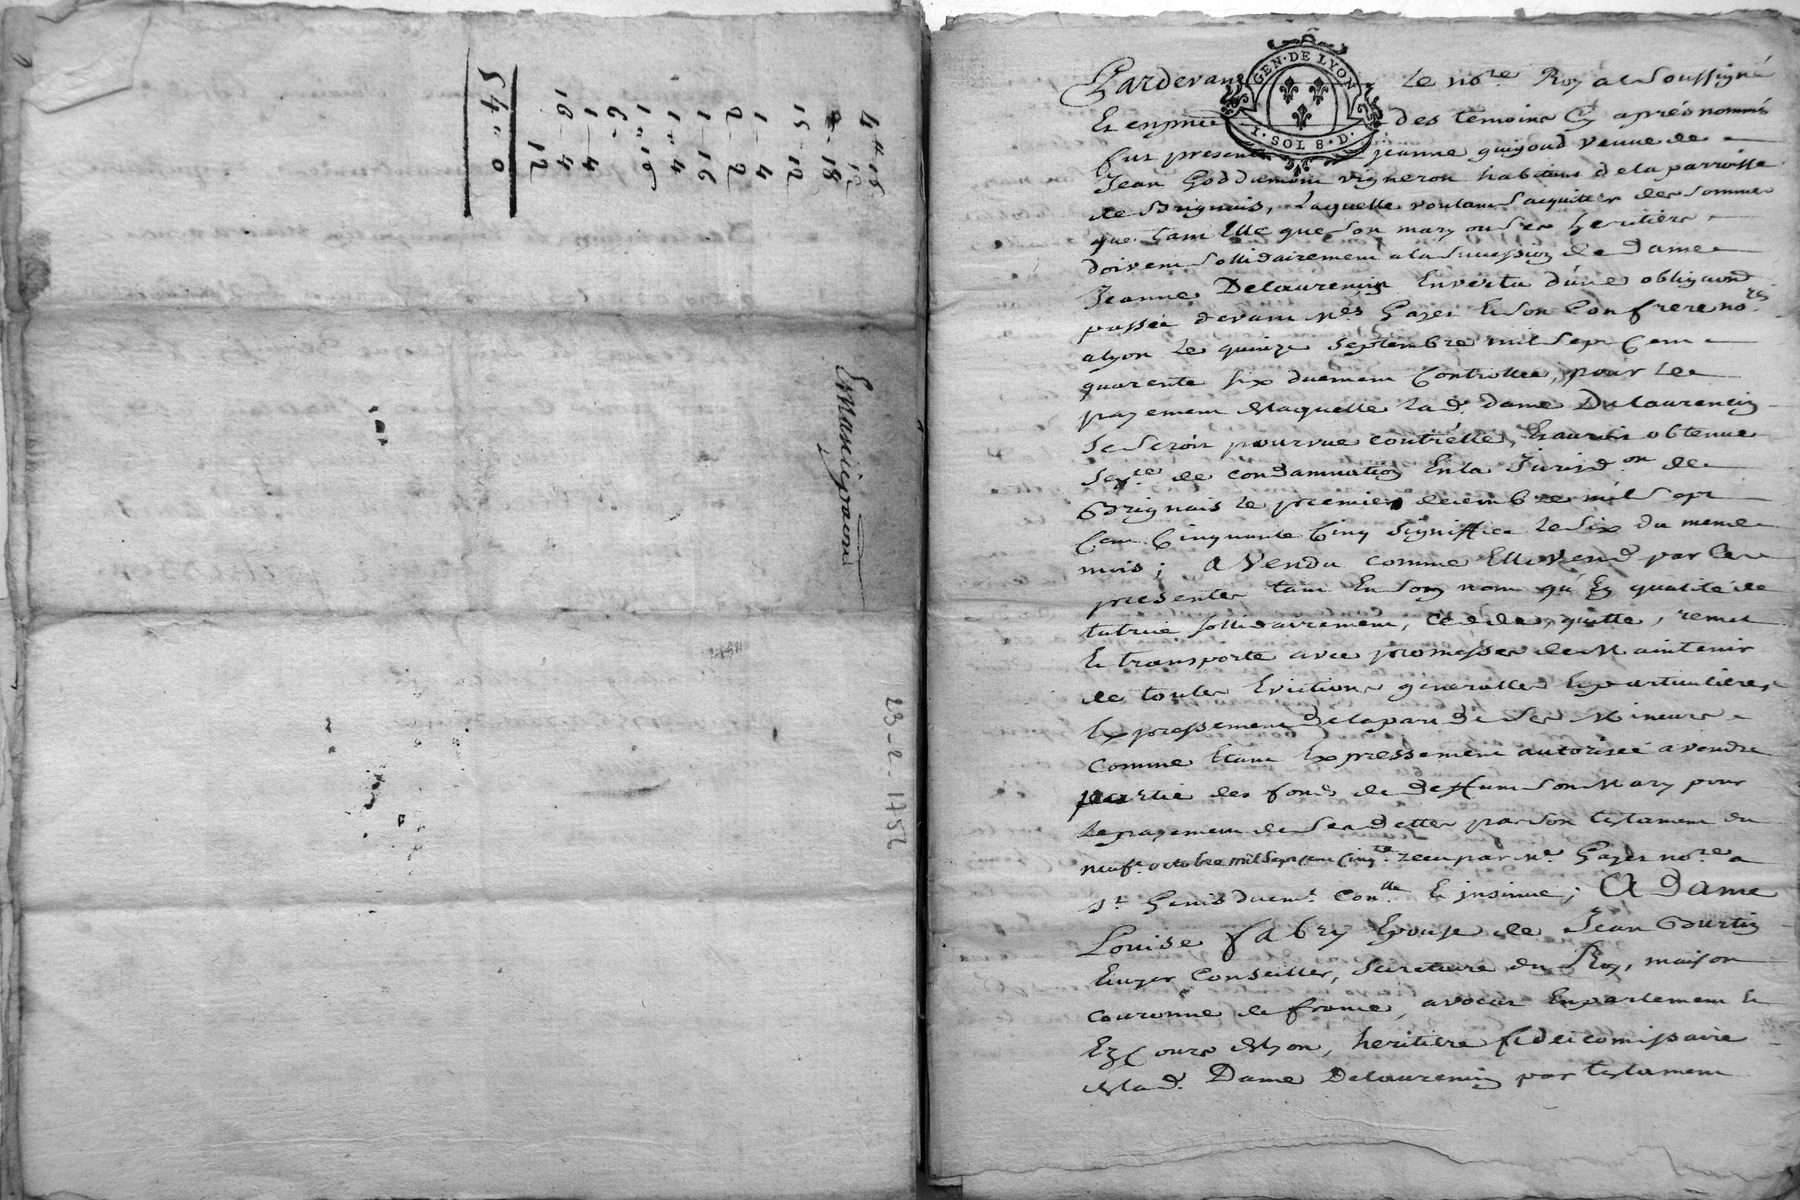 4 tt 15
12
2 - 18
15 - 12
1 - 4
2 - 2
1 - 16
1 " 4
1 " 16
6 "
1 - 4
16 - 4
12
54 " 0
Emancipation
23-2-1752
GEN·DE LYON
1·SOL 8·D·
Pardevant Le no.re Royal Soussigné
Et en pnce des temoins Cy aprés nommés
fut presente jeanne guigoud veuve de
Jean vigneron habitant de la parroisse
de Brignais, Laquelle voulant S'acquiter des Sommes
que tant Elle que Son mary ou Ses heritiers
doivent Sollidairement a la Succession de Dame
Jeanne Delaurencin En vertu d'une obligaon
passée devant Mes Gazes Et Son Confrere no.res
a lyon Le quinze Septembre mil Sept Cent
quarente Six duement Controllee, pour Le
payement de laquelle La d. dame Delaurencin
Se Seroit pourvue contr'elle, Et auroit obtenue
Sen.ce de condamnation En la Jurisd.on de
Brignais Le premier decembre mil Sept
Cent Cinquante Cinq Signiffiée le Six du meme
mois; a Vendu comme Elle vend par Ces
presentes tant En Son nom qu'En qualité de
tutrice Sollidairement, Cedde, quitte, remet
Et transporte avec promesses de Maintenir
de toutes Evictions generalles Et particulieres
Expressement de la part de Ses Mineurs
Comme Etant Expressement autorisée a vendre
partie des fonds de deffunt Son Mary pour
Le payement de Ses Dettes par Son testament du
neuf.e octobre mil Sept cent Cinq.te recu par Me. Gazes no.re a
St. Genis duem.t Con.llé Et insinué; A Dame
Louise fabry Epouse de Jean Burtin
Ecuyer Conseiller, Secretaire du Roy, maison
Couronne de france, avocat En parlement Et
Ez Cours de lyon, heritiere fideicomissaire
de la d. Dame Delaurencin par testament